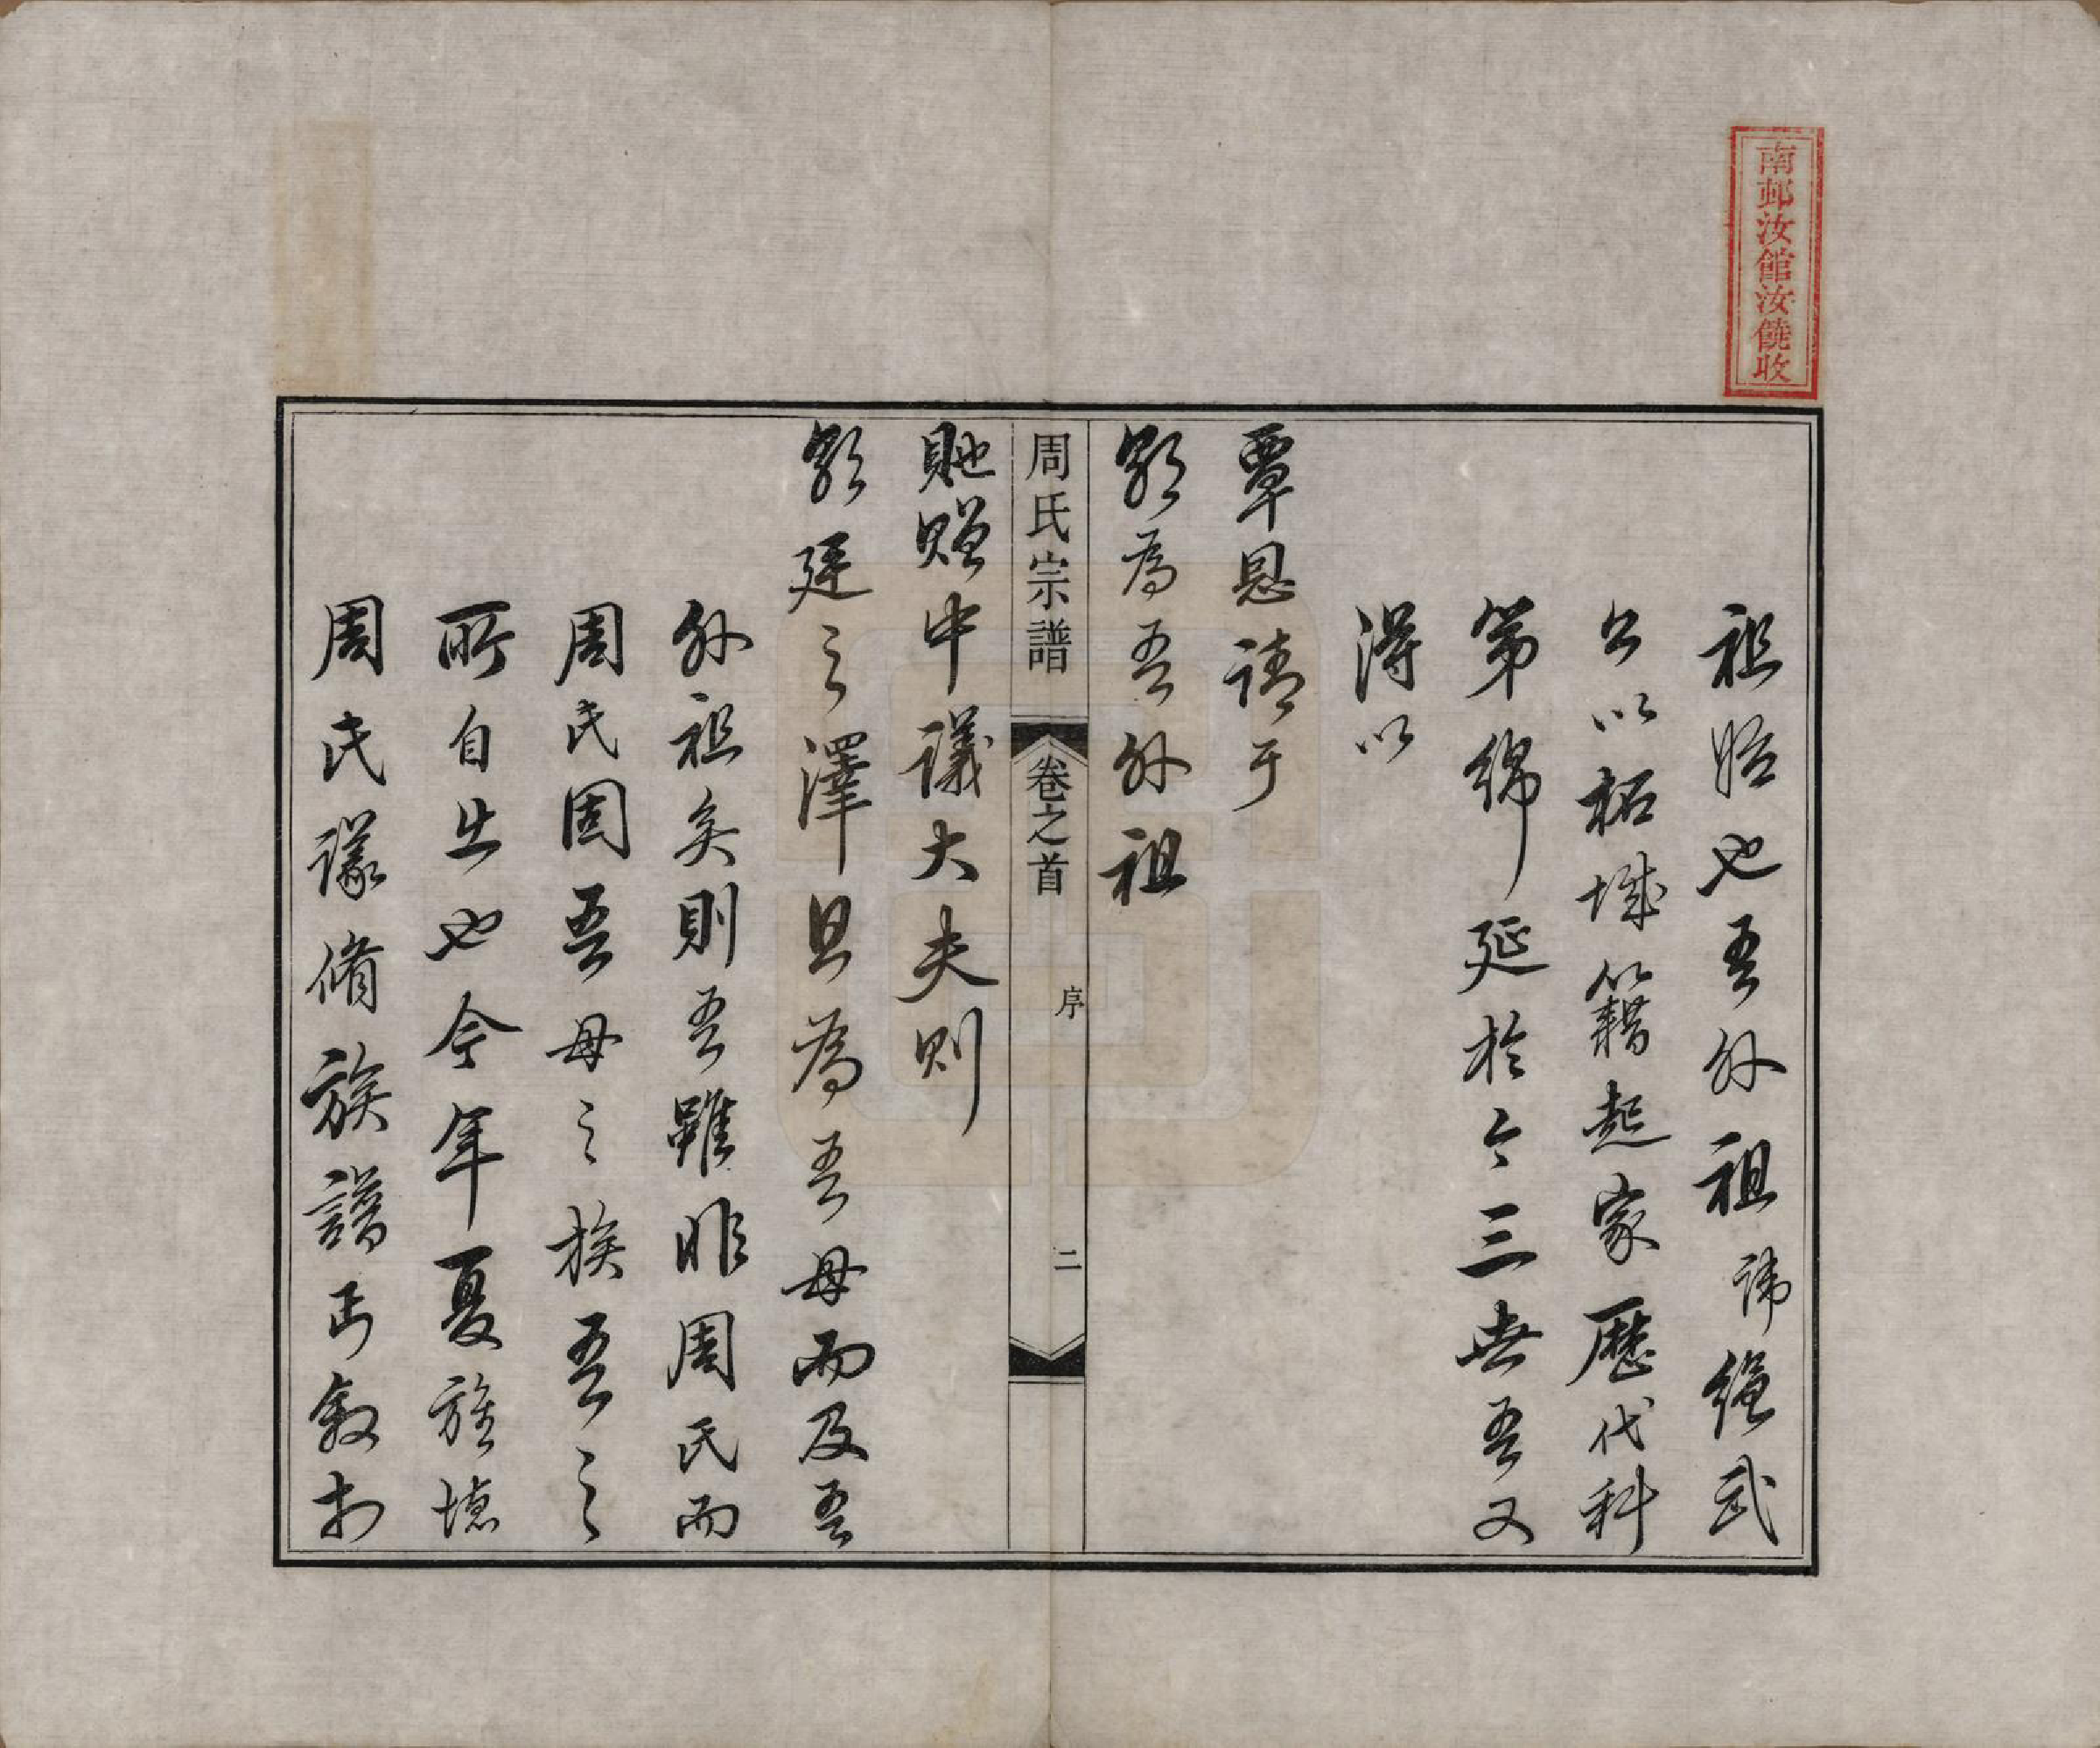 南邨汝館汝僥收
祖始也吾外祖諱繩武
公以柘城籍起家歷代科
第綿延於今三世吾又
得以
覃恩請于
朝為吾外祖
周氏宗譜
卷之首
序
二
貤贈中議大夫則
朝廷之澤且為吾母而及吾
外祖矣則吾雖非周氏而
周民固吾母之族吾之
所自出也今年夏族
周氏議脩族譜丐敘於